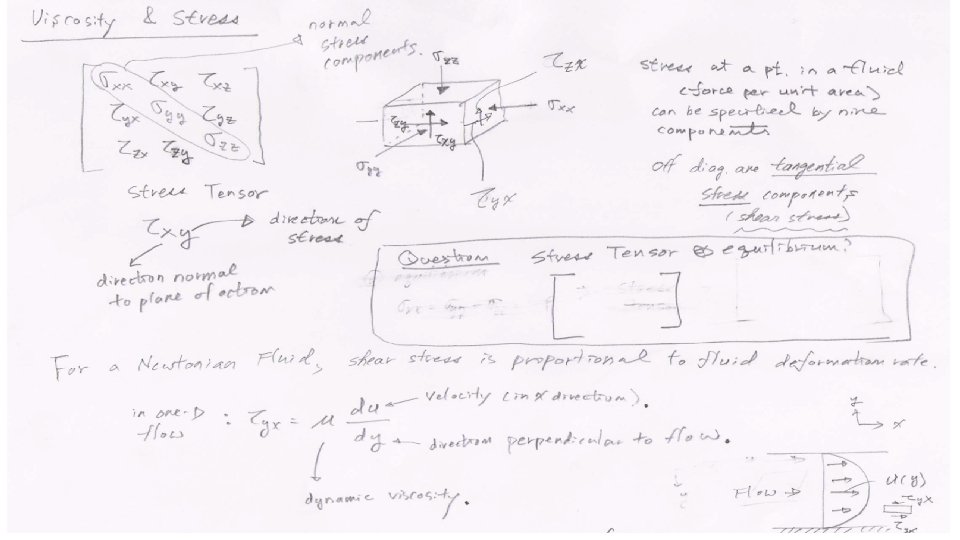 Viscosity & Stress
normal
stress
components.
σxx τxy τxz
τyx σyy τyz
τzx τzy σzz
Stress Tensor
τxy
direction of
stress
direction normal
to plane of action
σzz
τzx
σxx
τzy
τxy
σyy
τyx
stress at a pt. in a fluid
(force per unit area)
can be specified by nine
components
Off diag. are tangential
stress components
(shear stress)
Question Stress Tensor @ equilibrium?
For a Newtonian Fluid, shear stress is proportional to fluid deformation rate.
in one-D
flow : τyx = μ du/dy
velocity (in x direction).
direction perpendicular to flow.
dynamic viscosity.
y
x
Flow
u(y)
τyx